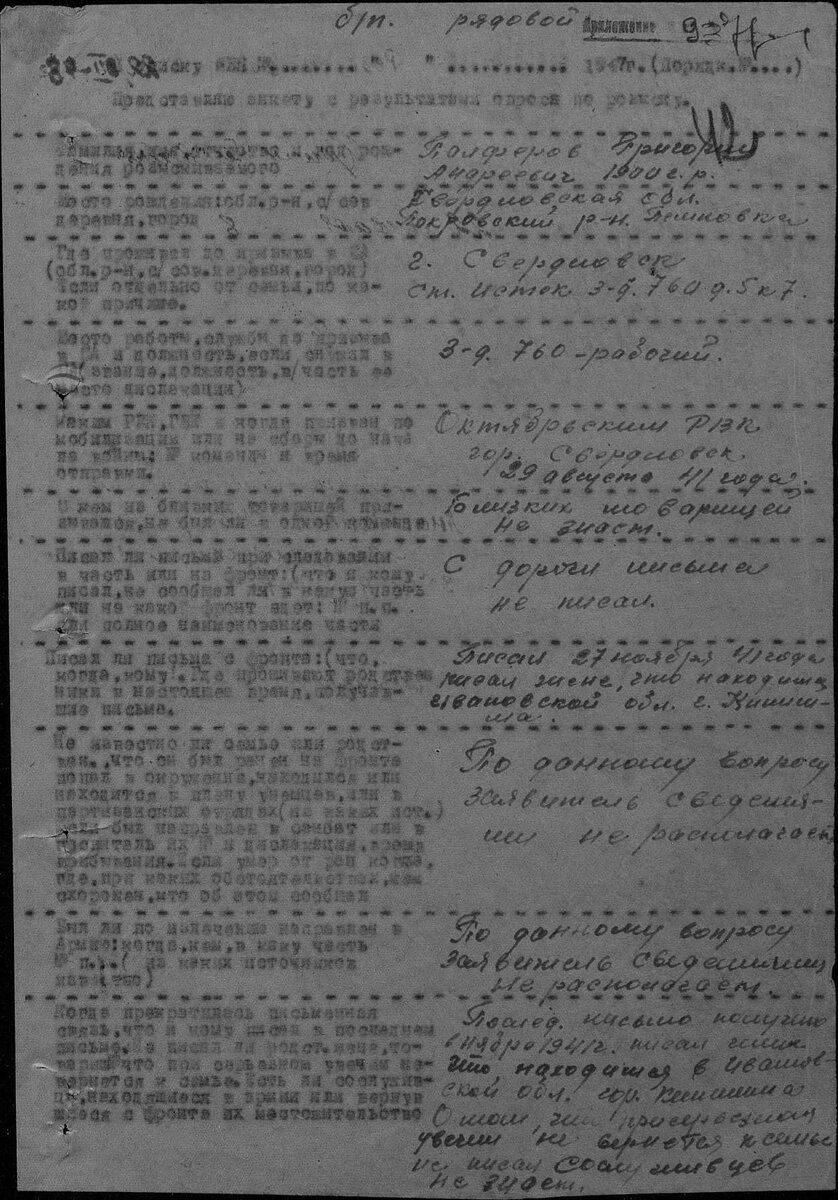 б/п. рядовой Приложение
1947г.(Порядк.№....)
Представляю анкету с результатами опроса по розыску.
Фамилия, имя, отчество и год рож-
дения розыскиваемого
Панферов Григорий
Андреевич 1900 г.р.
Место рождения:обл.р-н,с/сов
деревня,город
Свердловская обл.
Покровский р-н.
Где проживал до призыва в КА
(обл.р-н,с/сов.деревня,город)
Если отдельно от семьи,по ка-
кой причине.
г. Свердловск
ст. Исток з-д. 760 д.5 к 7.
Место работы,службы до призыва
в КА и должность,если служил в
КА(звание,должность,в/часть ее
место дислокации)
З-д. 760 - рабочий.
Каким РВК,ГВК и когда призван по
мобилизации или на сборы до нача
ла войны: № команды и время
отправки.
Октябрьским РВК
гор. Свердловск
29 августа 41 года.
С кем из близких товарищей при-
зывался,не был ли в одной команде
Близких товарищей
не знает.
Писал ли письма при следовании
в часть или на фронт:(что и кому
писал,не сообщал ли в какую часть
или на какой фронт едет: № п.п.
или полное наименование части
С дороги письма
не писал.
Писал ли письма с фронта:(что,
когда,кому. Где проживают родствен
ники в настоящее время,получав-
шие письма.
Писал 27 ноября 41 года
писал жене, что находится
Ивановской обл. г. Кинеш-
ма.
Не известно ли семье или родст-
вен.,что он был ранен на фронте
попал в окружение,находился или
находится в плену у немцев,или в
партизанских отрядах(из каких ист.)
если был направлен в санбат или в
госпиталь их № и дислокация,время
прибывания. Если умер от ран когда,
где,при каких обстоятельствах,кем
схоронен,кто об этом сообщал
По данному вопросу
заявитель сведения-
ми не располагает
Был ли по излечении направлен в
Армию:когда,кем,в какую часть
№ п.п.( из каких источников
известно)
По данному вопросу
заявитель сведениями
не располагает.
Когда прекратилась письменная
связь,что и кому писал в последнем
письме. Не писал ли родст.жене,то-
варищ. что при серьезном увечии не
вернется к семье. Есть ли сослужив-
цы,находящиеся в армии или вернув
шиеся с фронта их местожительство
Послед. письмо получено
в ноябре 1941 г. писал жене
что, находится в Иванов-
ской обл. гор. Кинешма
О том, что при серьезном
увечии не вернется к семье
не писал Сослуживцев
не знает.